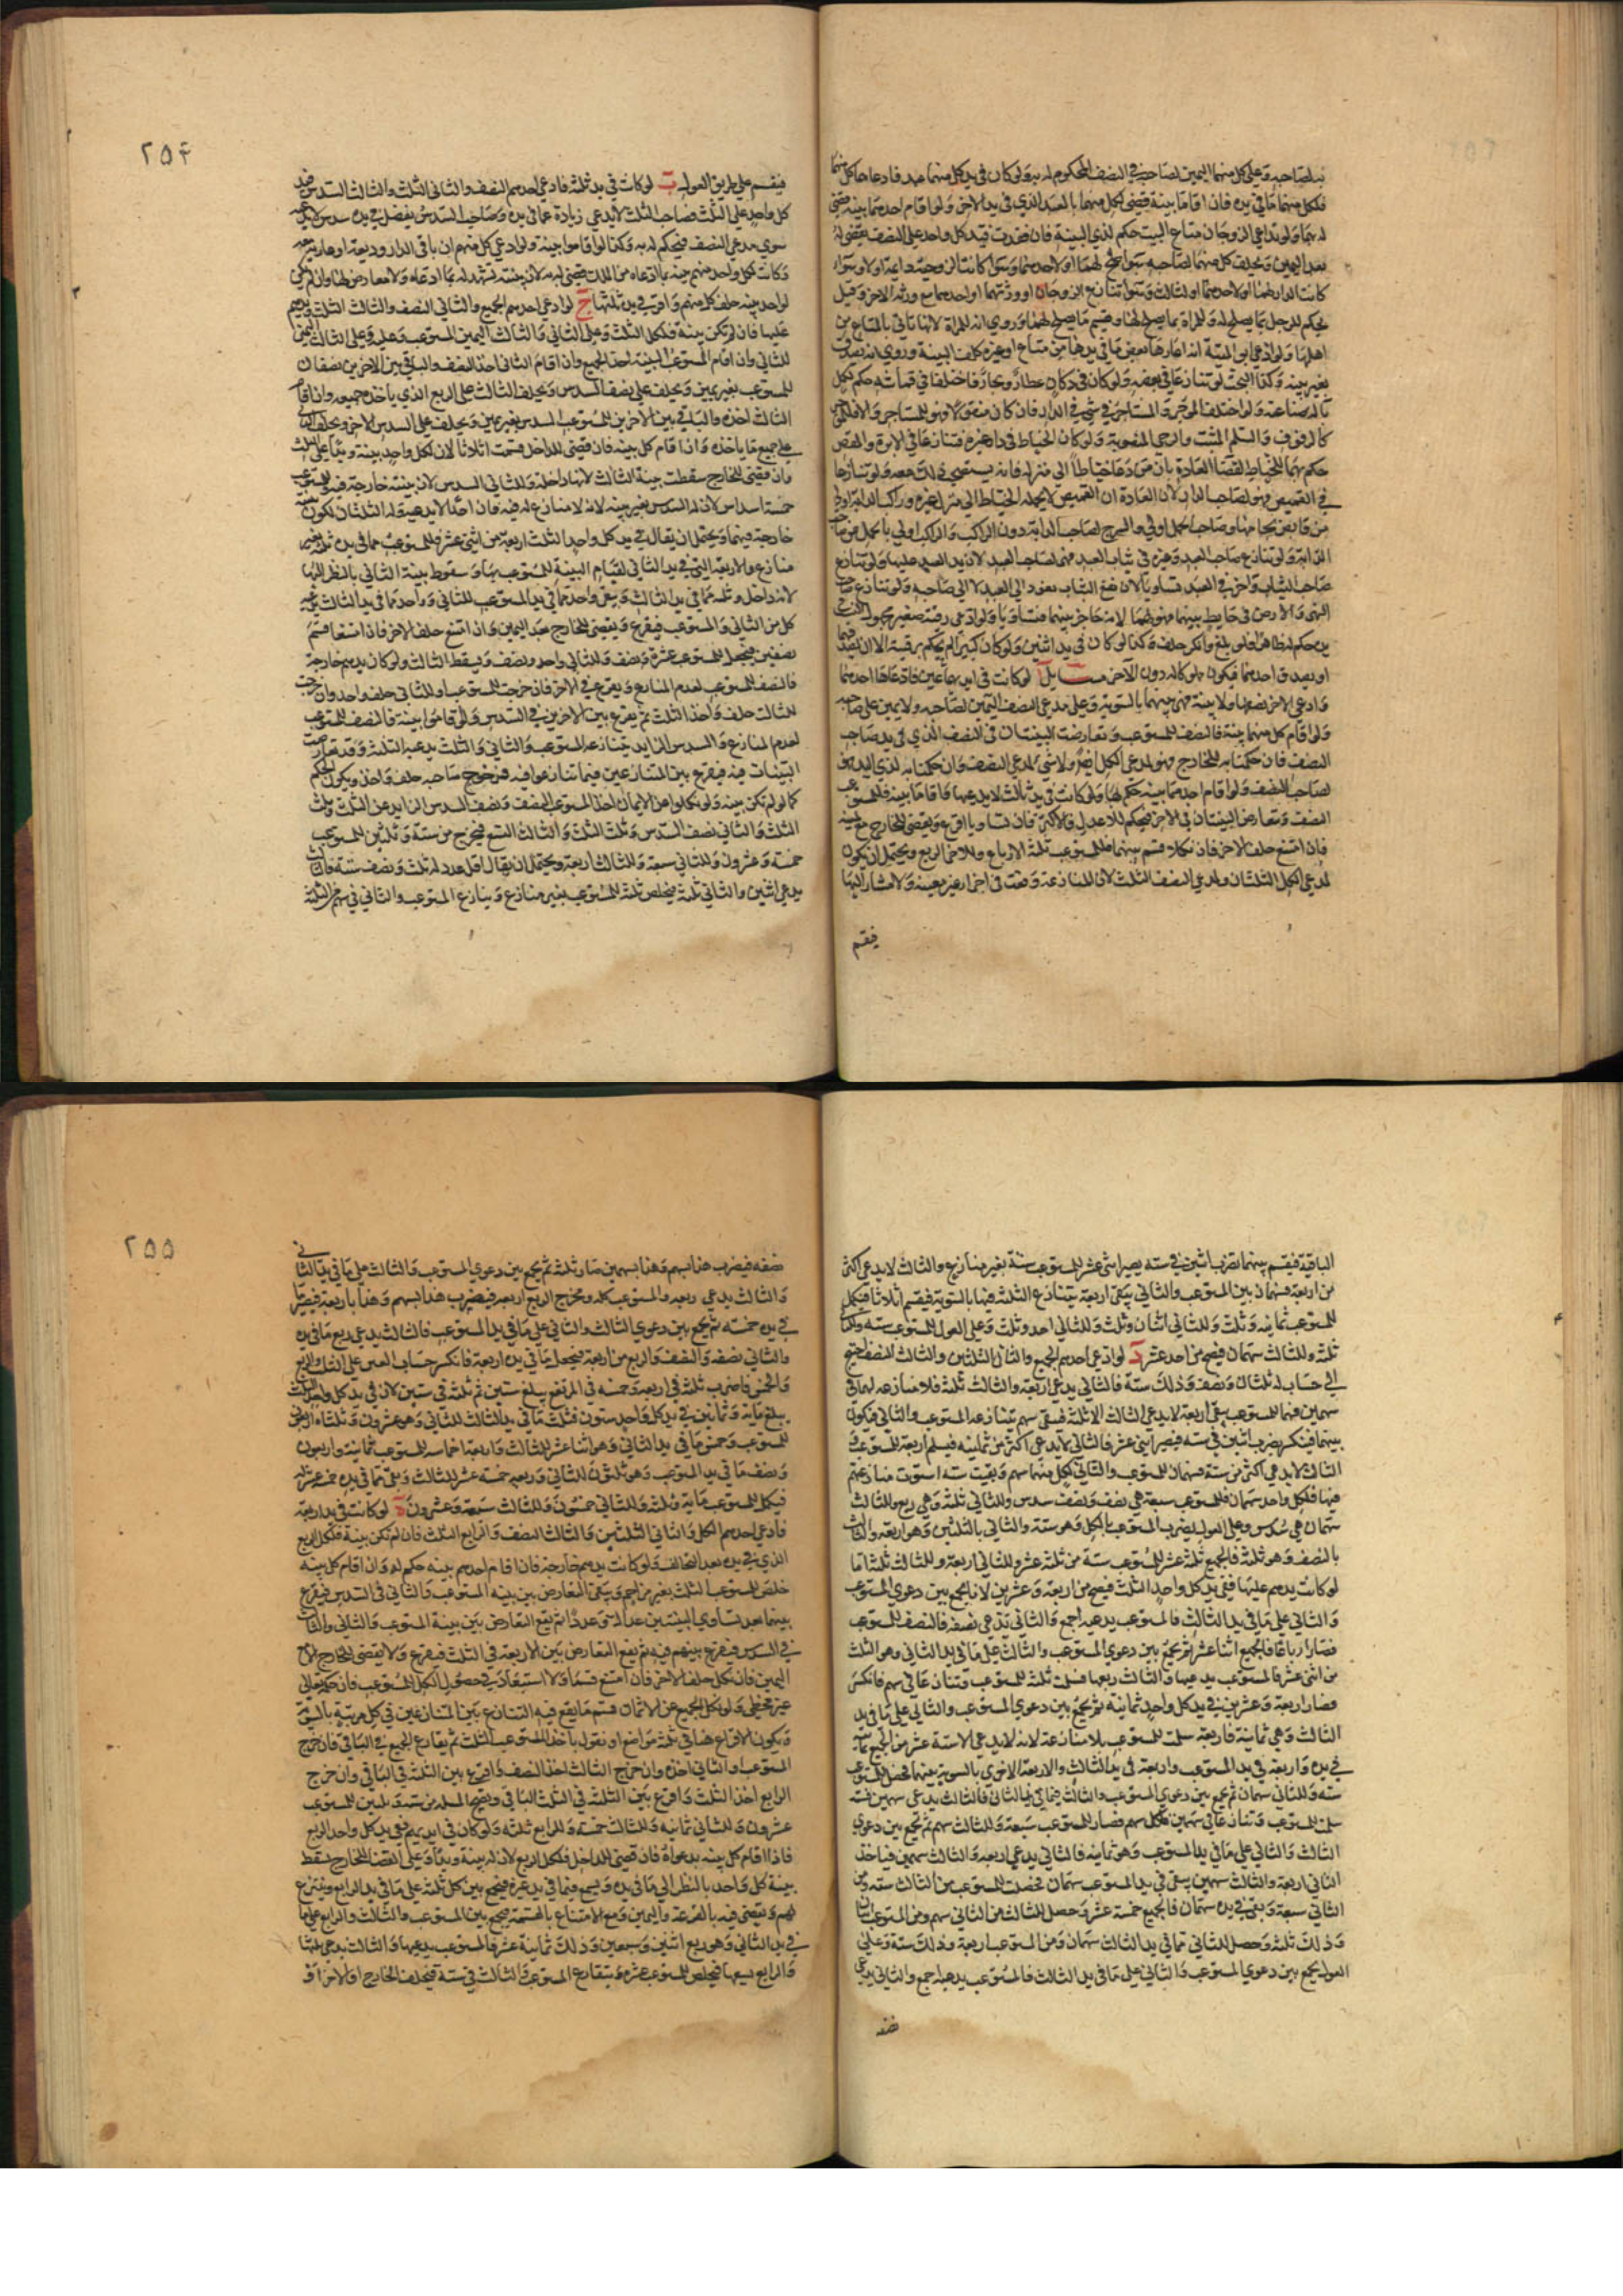 لصاحبه و على كل منهما اليمين لصاحبه في النصف المحكوم له به ولو كان في يد كل منهما عبد فادعاها كل منهما
فلكل منهما ما في يده فان اقاما بينة قضى لكل منهما بالعبد الذي في يد الاخر ولو اقام احدهما بينة قضى
له بهما ولو تداعى الزوجان متاع البيت حكم لذي البينة فان فقدت فيد كل واحد على النصف يقضى له
بعد اليمين ويحلف كل منهما لصاحبه سوا اصلح لهما او لاحدهما وسوا كانت الزوجية باقية او لا وسوا
كانت الدار لهما او لاحدهما او لثالث وسوا تنازع الزوجان او ورثتهما او احدهما مع ورثة الاخر وقيل
يحكم للرجل بما يصلح له وللمراة بما يصلح لها ويقسم ما يصلح لهما وروي انه للمراة لانها تاتي بالمتاع من
اهلها ولو ادعى ابو الميتة انه اعارها بعض ما في يدها من متاع او غيره كلف البينة وروي انه يصدق
بغير بينة وكذا البحث لو تنازعا في بعضه ولو كان في دكان عطار ونجار فاختلفا في قماشه حكم لكل
بالة صناعته ولو اختلف الموجر والمستاجر في شي في الدار فان كان منقولا فهو للمستاجر والا فللموجر
كالرفوف والسلم المثبت والرحى المنصوبة ولو كان الخياط في دار غيره فتنازعا في الابرة والمقص
حكم بهما للخياط لقضا العادة بان من دعا خياطا الى منزله فانه يستصحب ذلك معه ولو تنازعا
في القميص فهو لصاحب الدار لان العادة ان القميص لا يحمله الخياط الى منزل غيره وراكب الدابة اولى
من قابض لجامها وصاحب الحمل اولى والسرج لصاحب الدابة دون الراكب والراكب اولى بالحمل من صاحب
الدابة ولو تنازع صاحب العبد وغيره في ثياب العبد فهي لصاحب العبد لان يد العبد عليها ولو تنازع
صاحب الثياب واخر في العبد تساويا لان نفع الثياب يعود الى العبد لا الى صاحبه ولو تنازع صاحب
النهر والارض في حايط بينهما فهو لهما لانه حاجز بينهما فتساويا ولو ادعى رقية صغير مجهول النسب في
يده حكم له ظاهرا فلو بلغ وانكر حلف وكذا لو كان في يد اثنين ولو كان كبيرا لم يحكم برقيته الا ان يصدقهما
او يصدق احدهما فيكون مملوكا له دون الاخر مسايل ا لو كانت في ايديهما عين فادعاها احدهما
وادعى الاخر نصفها ولا بينة فهي بينهما بالسوية وعلى مدعي النصف اليمين لصاحبه ولا يمين على صاحبه
ولو اقام كل منهما بينة فالنصف للمستوعب وتعارضت البينتان في النصف الذي في يد صاحب
النصف فان حكمنا به للخارج فهو لمدعي الكل ايضا ولا شي لمدعي النصف وان حكمنا به لذي اليد فهو
لصاحب النصف ولو اقام احدهما بينة حكم بها ولو كانت في يد ثالث لا يدعيها فاقاما بينة فللمستوعب
النصف وتعارض البينتان في الاخر فيحكم للاعدل فالاكثر فان تساويا اقرع ويقضى للخارج مع يمينه
فان امتنع حلف الاخر فان نكلا قسم بينهما فللمستوعب ثلثة الارباع وللاخر الربع ويحتمل ان يكون
لمدعي الكل الثلثان ولمدعي النصف الثلث لان المنازعة وقعت في اجزا غير معينة ولا مشار اليها
فيقسم
٢٥۴
فيقسم على طريق العول ب لو كانت في يد ثلثة فادعى احدهم النصف والثاني الثلث والثالث السدس فيد
كل واحد على الثلث فصاحب الثلث لا يدعي زيادة عما في يده وصاحب السدس يفضل في يده سدس لا يدعيه
سوى مدعي النصف فيحكم له به وكذا لو اقاموا بينة ولو ادعى كل منهم ان باقي الدار وديعة او عارية معه
وكانت لكل واحد منهم بينة بما ادعاه من الملك قضى له به لان بينته تشهد له بما ادعاه ولا معارض لها وان لم يكن
لواحد بينة حلف كل منهم واقر في يده ثلثها ج لو ادعى احدهم الجميع والثاني النصف والثالث الثلث ويدهم
عليها فان لم تكن بينة فلكل الثلث وعلى الثاني والثالث اليمين للمستوعب وعليه وعلى الثالث اليمين
للثاني وان اقام المستوعب البينة اخذ الجميع وان اقام الثاني اخذ النصف والباقي بين الاخرين نصفان
للمستوعب بغير يمين ويحلف على نصف السدس ويحلف الثالث على الربع الذي ياخذه جميعه وان اقام
الثالث اخذه والباقي بين الاخرين للمستوعب السدس بغير يمين ويحلف على السدس الاخر ويحلف الثاني
على جميع ما ياخذه وان اقام كل بينة فان قضى للداخل قسمت اثلاثا لان لكل واحد بينة ويدا على الثلث
وان قضى للخارج سقطت بينة الثالث لانها داخلة وللثاني السدس لان بينته خارجة فيه وللمستوعب
خمسة اسداس لان له السدس بغير بينة لانه لا منازع له فيه فان احدا لا يدعيه وله الثلثان لكون بينته
خارجة فيهما ويحتمل ان يقال في يد كل واحد الثلث اربعة من اثني عشر فللمستوعب مما في يده ثلثة بغير
منازع والاربعة التي في يد الثاني لقيام البينة للمستوعب بها وسقوط بينة الثاني بالنظر اليها
لانه داخل وثلثة مما في يد الثالث ويبقى واحد مما في يد المستوعب للثاني وواحد مما في يد الثالث يدعيه
كل من الثاني والمستوعب فيقرع ويقضى للخارج بعد اليمين وان امتنع حلف الاخر فان امتنعا قسم
نصفين فيحصل للمستوعب عشرة ونصف وللثاني واحد ونصف ويسقط الثالث ولو كان يدهم خارجة
فالنصف للمستوعب لعدم المنازع ويقرع في الاخر فان خرجت للمستوعب او للثاني حلف واخذ وان خرجت
للثالث حلف واخذ الثلث ثم يقرع بين الاخرين في السدس ولو اقاموا بينة فالنصف للمستوعب
لعدم المنازع والسدس الزايد يتنازعه المستوعب والثاني والثلث يدعيه الثلثة وقد تعارضت
البينات فيه فيقرع بين المتنازعين فيما تنازعوا فيه فمن خرج صاحبه حلف واخذ ويكون الحكم
كما لو لم تكن بينة ولو نكلوا عن الايمان اخذ المستوعب النصف ونصف السدس الزايد عن الثلث وثلث
الثلث والثاني نصف السدس وثلث الثلث والثالث التسع فيخرج من ستة وثلثين للمستوعب
خمسة وعشرون وللثاني سبعة وللثالث اربعة ويحتمل ان يقال اقل عدد له ثلث ونصف ستة فالثالث
يدعي اثنين والثاني ثلثة فيخلص ثلثة للمستوعب بغير منازع وينازع المستوعب والثاني في سهم من الثلثة
الباقية فيقسم بينهما تضرب اثنين في ستة يصير اثنى عشر للمستوعب ستة بغير منازع والثالث لا يدعي اكثر
من اربعة فسهمان بين المستوعب والثاني يبقى اربعة يتنازع الثلثة فيها بالسوية فيقسم اثلاثا فيكمل
للمستوعب ثمانية وثلث وللثاني اثنان وثلث وللثالث واحد وثلث وعلى العول للمستوعب ستة وللثاني
ثلثة وللثالث سهمان فيصح من احد عشر د لو ادعى احدهم الجميع والثاني الثلثين والثالث النصف احتيج
الى حساب له ثلثان ونصف وذلك ستة فالثاني يدعي اربعة والثالث ثلثة فلا منازعه لهما في
سهمين فهما للمستوعب يبقى اربعة لا يدعي الثالث الا ثلثة فيبقى سهم يتنازعه المستوعب والثاني فيكون
بينهما فينكسر يضرب اثنين في ستة فيصير اثنى عشر فالثاني لا يدعي اكثر من ثمانية فيسلم اربعة للمستوعب و
الثالث لا يدعي اكثر من ستة فسهمان للمستوعب والثاني لكل منهما سهم وبقيت ستة استوت منازعتهم
فيها فلكل واحد سهمان فللمستوعب سبعة هي نصف ونصف سدس وللثاني ثلثة وهي ربع وللثالث
سهمان هي سدس وعلى العول يضرب المستوعب بالكل وهو ستة والثاني بالثلثين وهو اربعة والثالث
بالنصف وهو ثلثة فالجميع ثلثة عشر للمستوعب ستة من ثلثة عشر وللثاني اربعة وللثالث ثلثة اما
لو كانت يدهم عليها ففي يد كل واحد الثلث فيصح من اربعة وعشرين لانا نجمع بين دعوى المستوعب
والثاني على ما في يد الثالث فالمستوعب يدعيه اجمع والثاني يدعي نصفه فالنصف للمستوعب
فصار ارباعا فالجميع اثنا عشر ثم يجمع بين دعوى المستوعب والثالث على ما في يد الثاني وهو الثلث
من اثنى عشر فالمستوعب يدعيها والثالث ربعها فسلمت ثلثة للمستوعب وتنازعا في سهم فانكسر
فصار اربعة وعشرين في يد كل واحد ثمانية ثم يجمع بين دعوى المستوعب والثاني على ما في يد
الثالث وهي ثمانية فاربعة سلمت للمستوعب بلا منازعة لانه لا يدعي الا ستة عشر من الجميع ثمانية
في يده واربعة في يد المستوعب واربعة في يد الثالث والاربعة الاخرى بالسوية بينهما فحصل للمستوعب
ستة وللثاني سهمان ثم يجمع بين دعوى المستوعب والثالث فيما في يد الثاني فالثالث يدعي سهمين فستة
سلمت للمستوعب وتنازعا في سهمين فلكل سهم فصار للمستوعب سبعة وللثالث سهم ثم يجمع بين دعوى
الثالث والثاني على ما في يد المستوعب وهو ثمانية فالثاني يدعي اربعة والثالث سهمين فياخذ
الثاني اربعة والثالث سهمين يبقى في يد المستوعب سهمان فحصلت للمستوعب من الثالث ستة ومن
الثاني سبعة وبقي في يده سهمان فالجميع خمسة عشر وحصل للثالث من الثاني سهم ومن المستوعب اثنان
وذلك ثلثة وحصل للثاني مما في يد الثالث سهمان ومن المستوعب اربعة وذلك ستة وعلى
العول يجمع بين دعوى المستوعب والثاني على ما في يد الثالث فالمستوعب يدعيه اجمع والثاني يدعي
نصفه
٢٥٥
نصفه فيضرب هذا بسهم وهذا بسهمين صار ثلثة ثم يجمع بين دعوى المستوعب والثالث على ما في يد الثاني
والثالث يدعي ربعه والمستوعب كله ومخرج الربع اربعة فيضرب هذا بسهم وهذا باربعة فيصير ما
في يده خمسة ثم يجمع بين دعوى الثالث والثاني على ما في يد المستوعب فالثالث يدعي ربع ما في يده
والثاني نصفه والنصف والربع من اربعة فيجعل ما في يده اربعة فانكسر حساب العين على الثلث والربع
والخمس فاضرب ثلثة في اربعة وخمسة في المرتفع يبلغ ستين ثم ثلثة في ستين لان في يد كل واحد الثلث
يبلغ ماية وثمانين في يد كل واحد ستون فثلث ما في يد الثالث للثاني وهو عشرون وثلثاه اربعون
للمستوعب وخمس ما في يد الثاني وهو اثنا عشر للثالث واربعة اخماسه للمستوعب ثمانية واربعون
ونصف ما في يد المستوعب وهو ثلثون للثاني وربعه خمسة عشر للثالث وبقي مما في يده خمسة عشر له
فيكمل للمستوعب ماية وثلثة وللثاني خمسون وللثالث سبعة وعشرون ه لو كانت في يد اربعة
فادعى احدهم الكل والثاني الثلثين والثالث النصف والرابع الثلث فان لم تكن بينة فلكل الربع
الذي في يده بعد التحالف ولو كانت يدهم خارجة فان اقام احدهم بينة حكم له وان اقام كل بينة
خلص للمستوعب الثلث بغير مزاحم ويبقى التعارض بين بينة المستوعب والثاني في السدس فيقرع
بينهما بعد تساوي البينتين عدالة وعددا ثم يقع التعارض بين بينة المستوعب والثاني والثالث
في السدس فيقرع بينهم فيه ثم يقع التعارض بين الاربعة في الثلث فيقرع ولا يقضى للخارج الا مع
اليمين فان نكل حلف الاخر فان امتنع قسم ولا استبعاد في حصول الكل للمستوعب فان حكمه تعالى
غير مخطي ولو نكل الجميع عن الايمان قسم ما يقع فيه التنازع بين المتنازعين في كل مرتبة بالسوية
ويكون الاقراع هنا في ثلثة مواضع او نقول ياخذ المستوعب الثلث ثم يقارع الجميع في الباقي فان خرج
المستوعب او الثاني اخذه وان خرج الثالث اخذ النصف واقرع بين الثلثة في الباقي وان خرج
الرابع اخذ الثلث واقرع بين الثلثة في الثلث الباقي وتصح المسلة من ستة وثلثين للمستوعب
عشرون وللثاني ثمانية وللثالث خمسة وللرابع ثلثة ولو كان في ايديهم ففي يد كل واحد الربع
فاذا اقام كل بينة بدعواه فان قضينا للداخل فلكل الربع لان له بينة ويدا وعلى القضا للخارج يسقط
بينة كل واحد بالنظر الى ما في يده ويسمع فيما في يد غيره فيجمع بين كل ثلثة على ما في يد الرابع وينتزع
لهم ويقضى فيه بالقرعة واليمين ومع الامتناع بالقسمة فيجمع بين المستوعب والثالث والرابع على ما
في يد الثاني وهو ربع اثنين وسبعين وذلك ثمانية عشر فالمستوعب يدعيها والثالث يدعي ثلثها
والرابع تسعها فيخلص للمستوعب عشرة ويتقارع المستوعب والثالث في ستة فيحلف الخارج او الاخر او